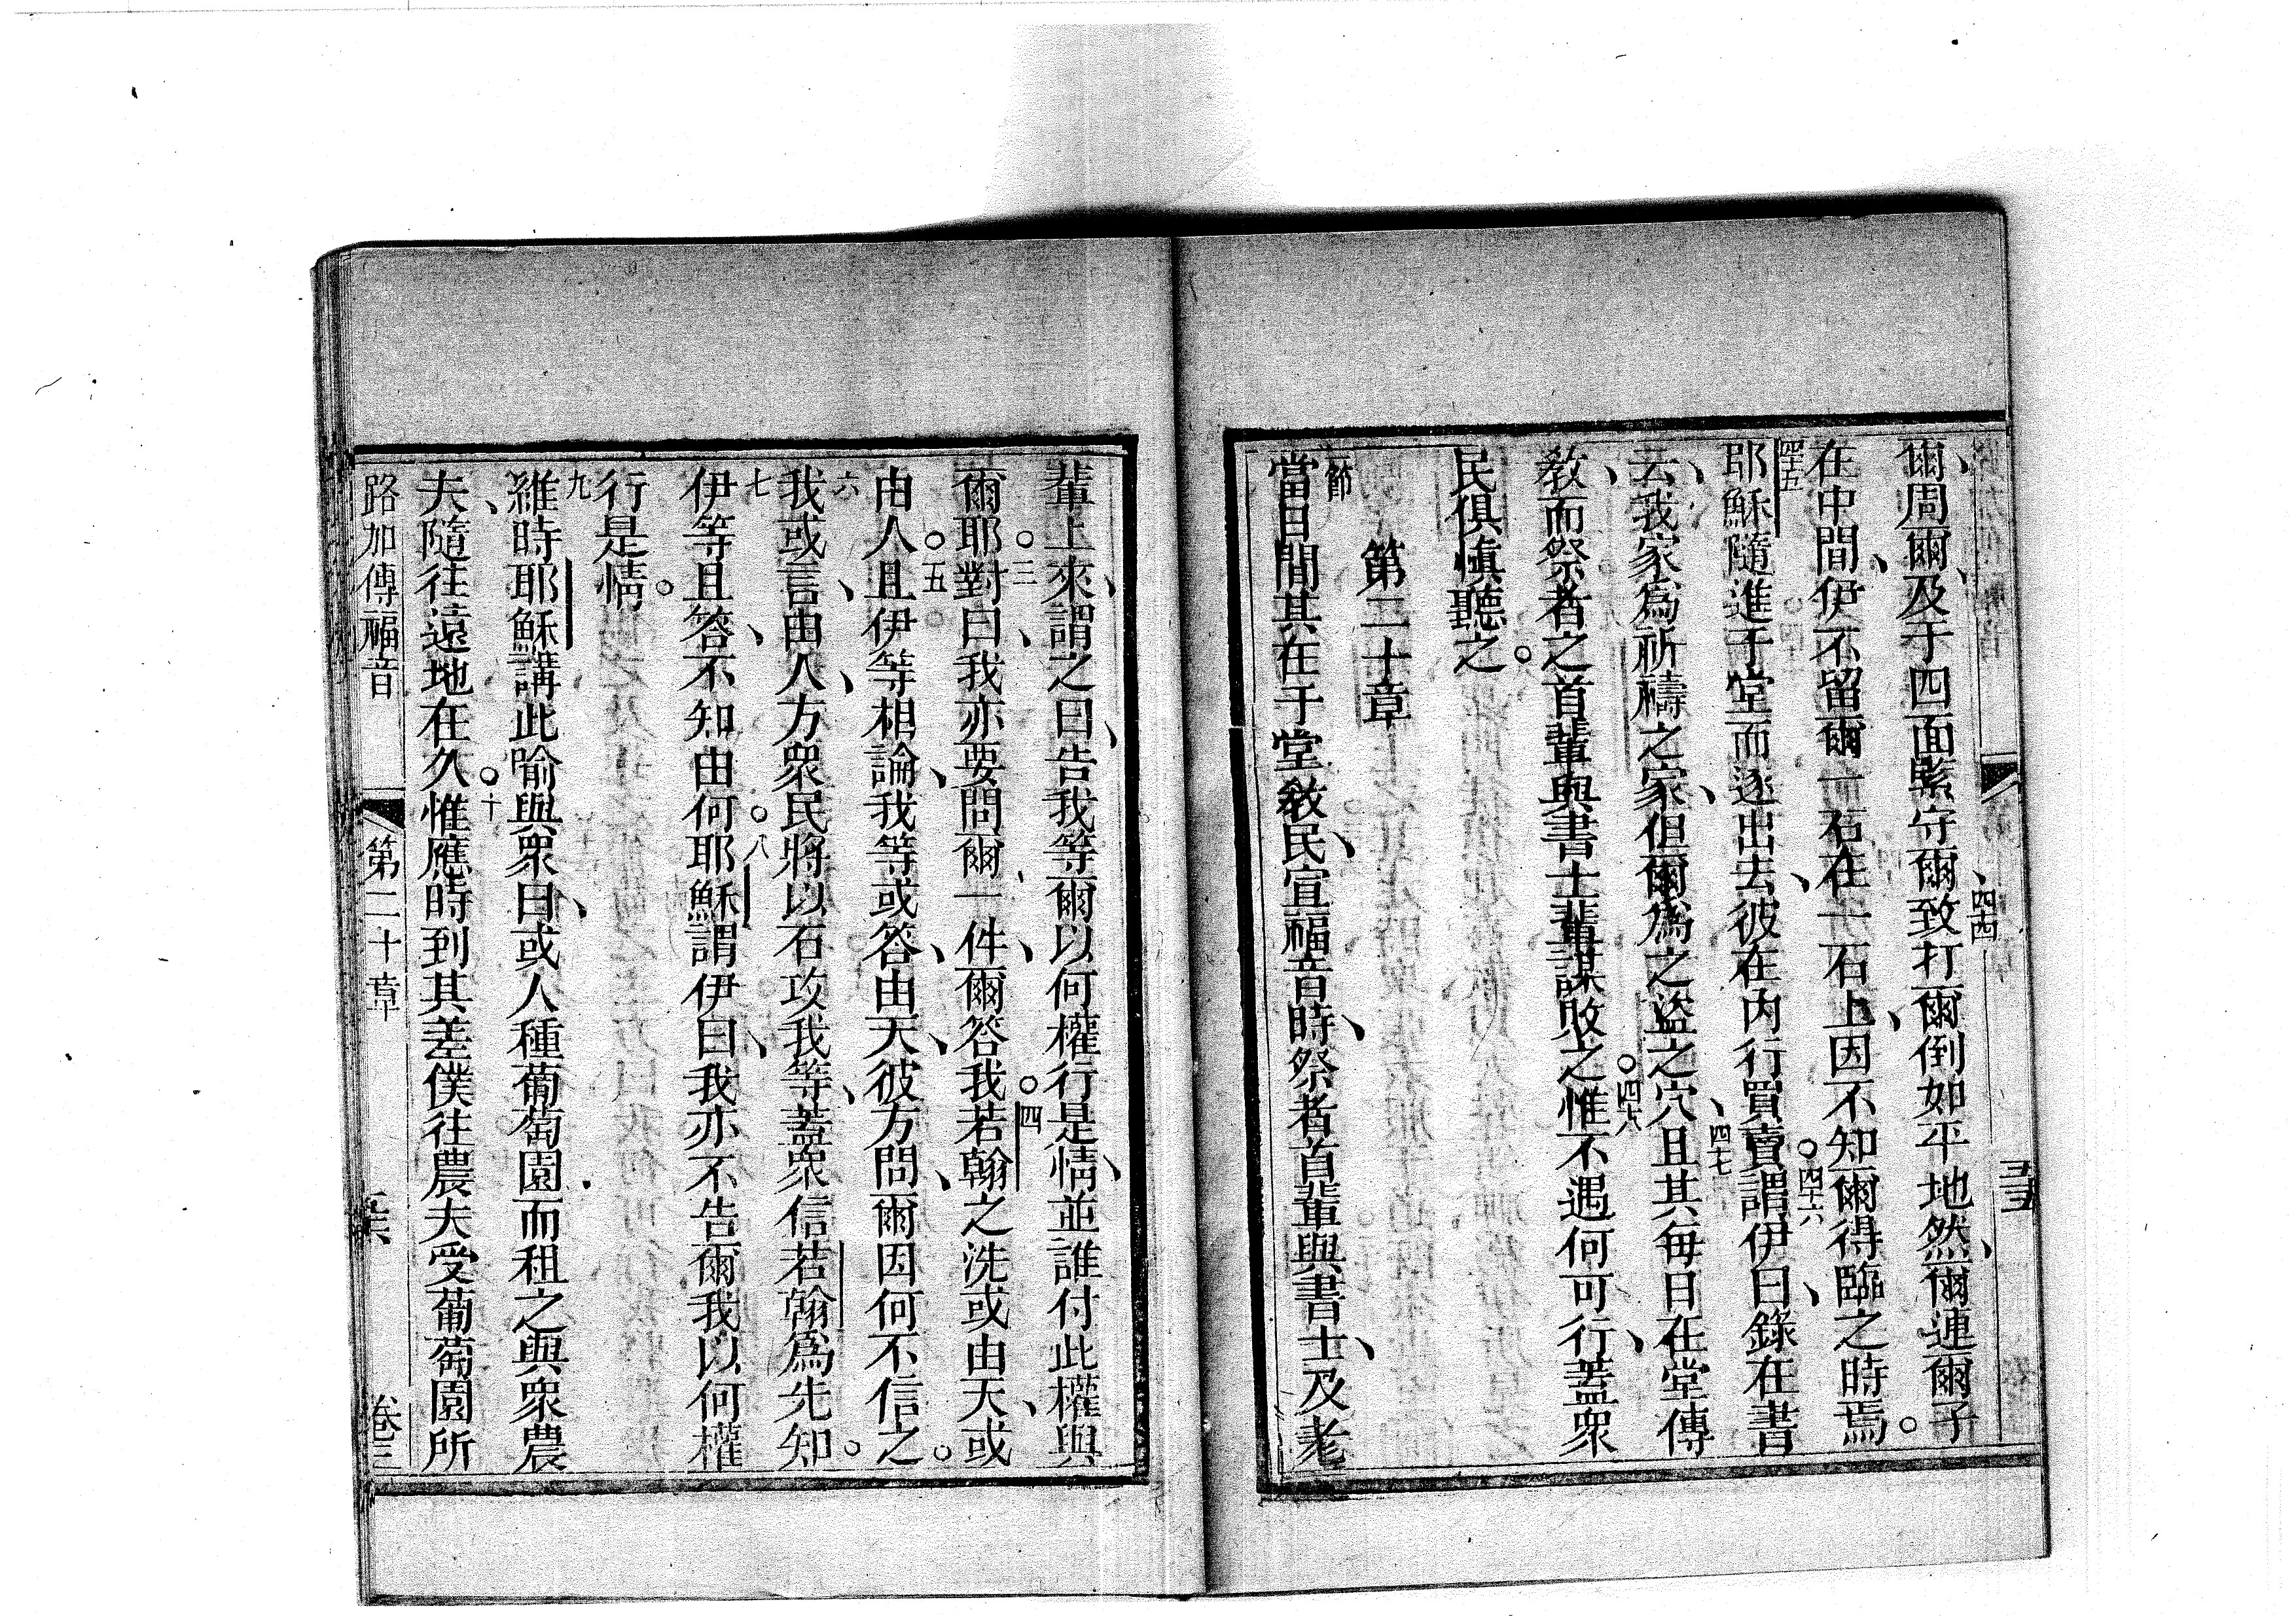 爾、周爾、及于四面緊守爾、四四致打爾倒如平地然、爾連爾子
在中間、伊不留爾一石在一石上、因不知爾得臨之時焉。
四五耶穌隨進于堂而逐出去、彼在內行買賣。四六謂伊曰、錄在書
云、我家為祈禱之家、但爾為之盜之穴、四七且其每日在堂傳
教、而祭者之首輩與書士輩謀敗之。四八惟不遇何可行、蓋衆
民俱慎聽之。
第二十章
一節當日間其在于堂教民、宣福音時、祭者首輩與書士、及老
輩上來、謂之曰、告我等爾以何權行是情、並誰付此權與
爾。三耶對曰、我亦要問爾一件、爾答我。四若翰之洗或由天、或
由人。五且伊等相論、我等或答、由天、彼方問、爾因何不信之。
六我或言、由人、方衆民將以石攻我等、蓋衆信若翰為先知。
七伊等且答、不知由何。八耶穌謂伊曰、我亦不告爾我以何權
行是情。
九維時耶穌講此喻與衆曰、或人種葡萄園而租之與衆農
夫、隨往遠地在久。十惟應時到其差僕往農夫受葡萄園所
路加傳福音 第二十章 卷三